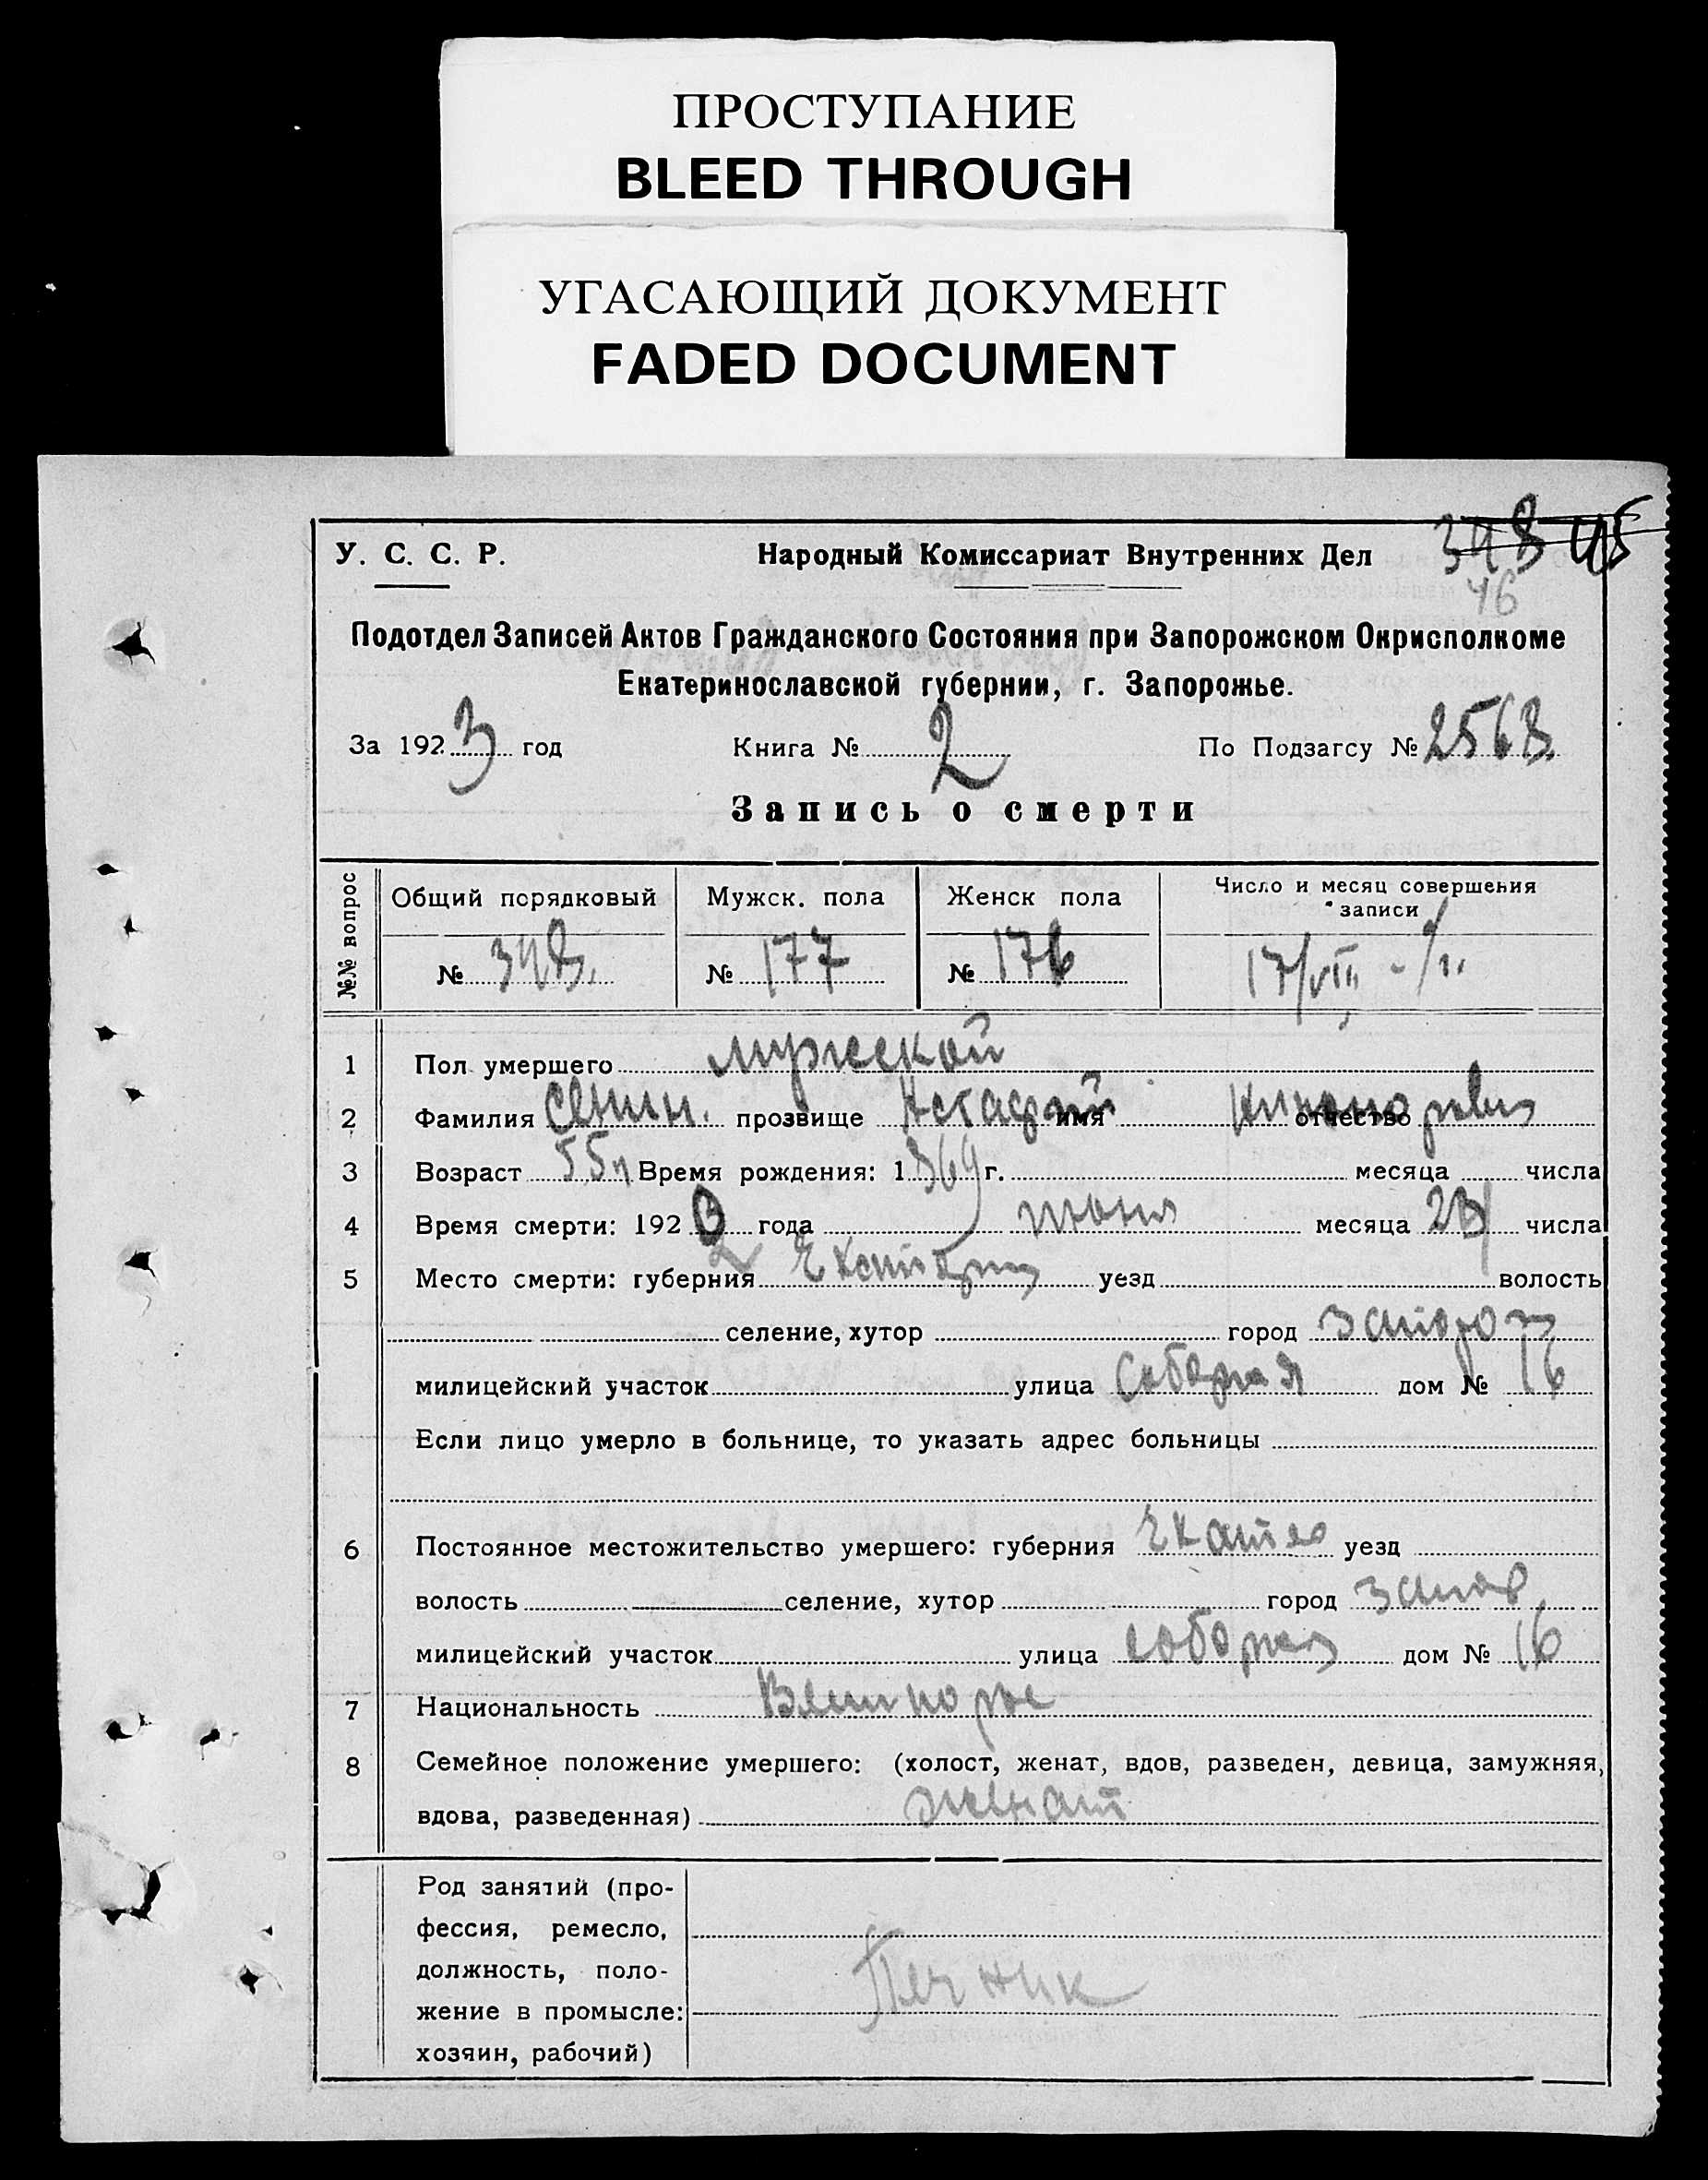 ПРОСТУПАНИЕ
BLEED THROUGH
УГАСАЮЩИЙ ДОКУМЕНТ
FADED DOCUMENT
У. С. С. Р. Народный Комиссариат Внутренних Дел
46
Подотдел Записей Актов Гражданского Состояния при Запорожском Окрисполкоме
Екатеринославской губернии, г. Запорожье.
За 1923 год Книга № 2 По Подзагсу № 2563
Запись о смерти
№№ вопрос Общий порядковый Мужск. пола Женск пола Число и месяц совершения записи
№ № 177 № 176 17/VIII
1 Пол умершего мужской
2 Фамилия Сенин. прозвище Астафий имя отчество
3 Возраст 55 Время рождения: 1869 г. месяца числа
4 Время смерти: 192 года июня месяца числа
5 Место смерти: губерния Екатерин уезд волость
селение, хутор город Запорож
милицейский участок улица Соборная дом № 16
Если лицо умерло в больнице, то указать адрес больницы
6 Постоянное местожительство умершего: губерния Екатер уезд
волость селение, хутор город Запор
милицейский участок улица Соборная дом № 16
7 Национальность
8 Семейное положение умершего: (холост, женат, вдов, разведен, девица, замужняя,
вдова, разведенная) женат
Род занятий (про-
фессия, ремесло,
должность, поло-
жение в промысле:
хозяин, рабочий)
Печник